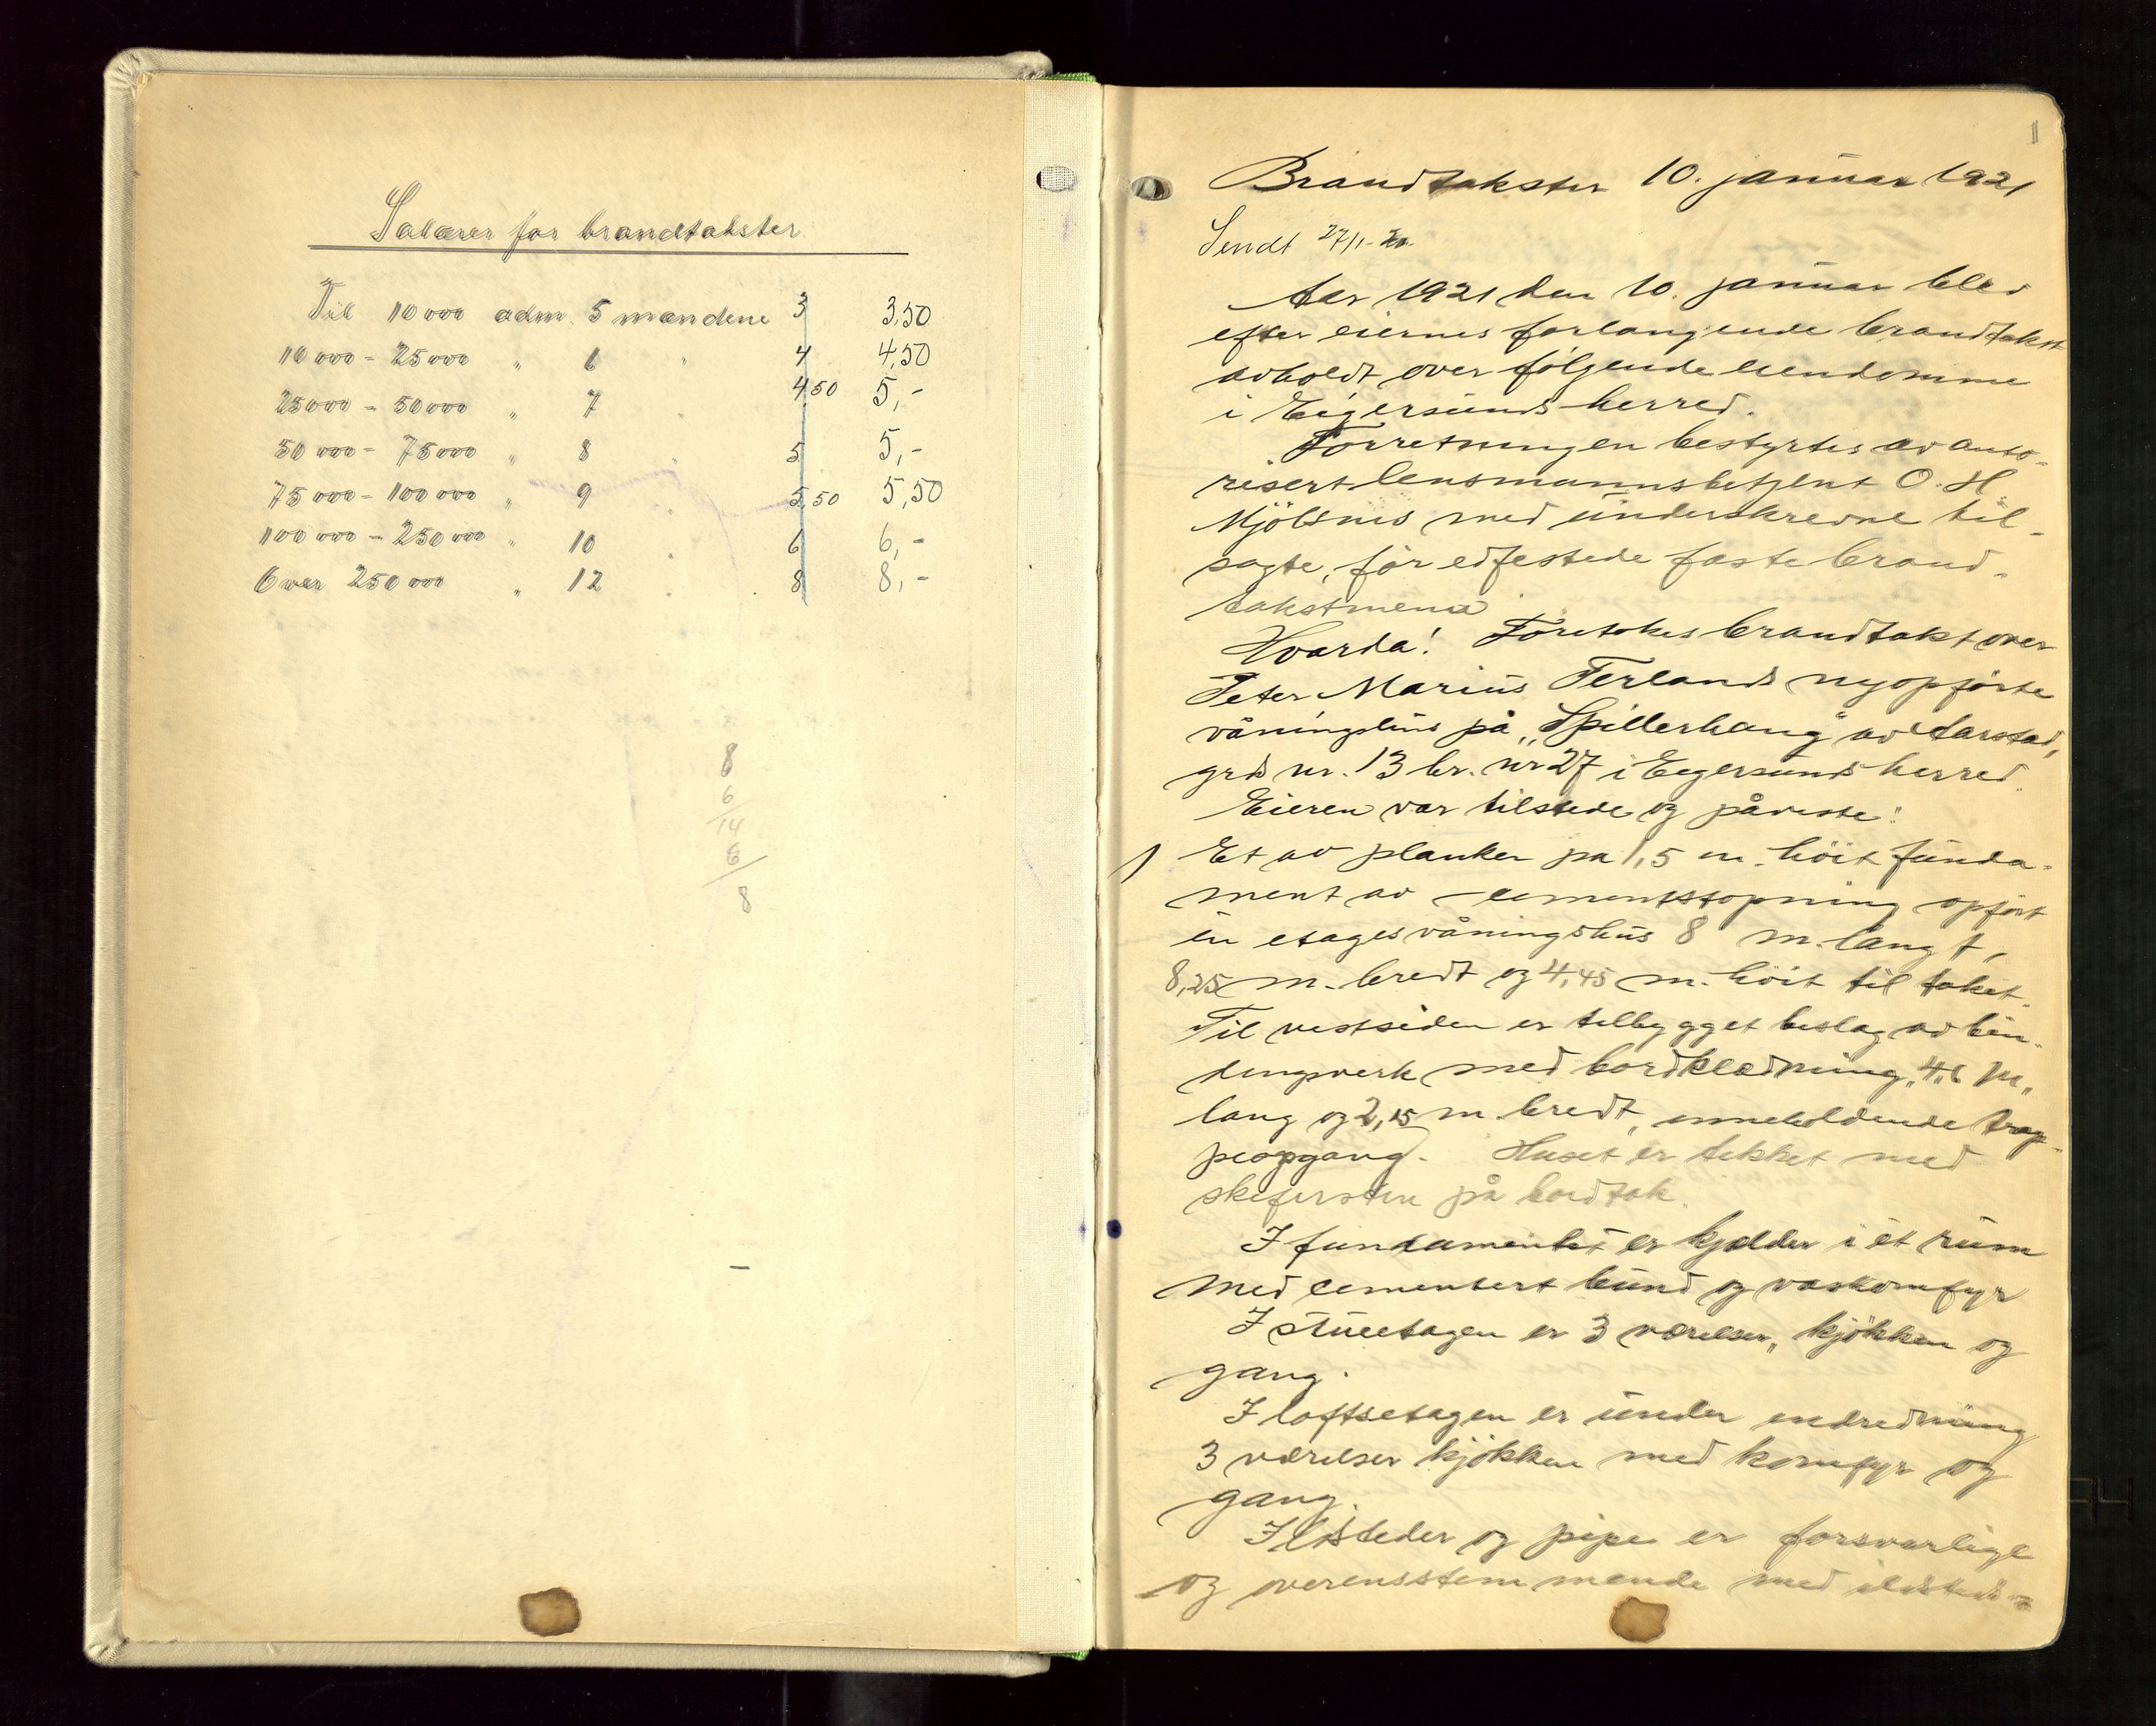 Salærer for brandtakster
Til 10000 adm. 5 mændene 3 3,50
10000 - 25000 " 6 " 4 4,50
25000 - 50000 " 7 " 4,50 5,-
50000 - 75000 " 8 " 5 5,-
75000 - 100000 " 9 " 5,50 5,50
100000 - 250000 " 10 " 6 6,-
Over 250000 " 12 " 8 8,-
8
6
14
6
8
1
Brandtakster 10. januar 1921
Sendt 27/1-
Aar 1921 den 10. januar blev
efter eiernes forlangende brandtakst
avholdt over følgende eiendomme
i Eigersunds herred.
Forretningen bestyrtes av auto-
risert lensmannsbetjent O. H.
Mjölsnes med underskrevne til-
sagte, för edfestede faste brand-
takstmenn
Hvarda! Foretokes brandtakst over
Peter Marius Terlands nyopförte
våningshus på "Spillerhaug" av Aarstad,
grds nr. 13 br. nr 27 i Eigersunds herred.
Eieren var tilstede og påviste:
1 Et av planker pa 1,5 m. höit funda-
ment av cementstopning opfört
én etages våningshus 8 m. langt,
8,25 m. bredt og 4,45 m. höit til taket.
Til vestsiden er tilbygget beslag av bin-
dingsverk med bordklædning, 4,6 m.
lang og 2,15 m bredt, inneholdende trap-
peopgang. Huset er tekket med
skifersten på bordtak.
I fundamentet er kjelder i ét rum
med cementert bund og vaskomfyr
I stueetagen er 3 værelser, kjökken og
gang.
I loftsetagen er under indredning
3 værelser kjökken med komfyr og
gang.
Ildsteder og pipe er forsvarlige
og overensstemmende med ildsteds-